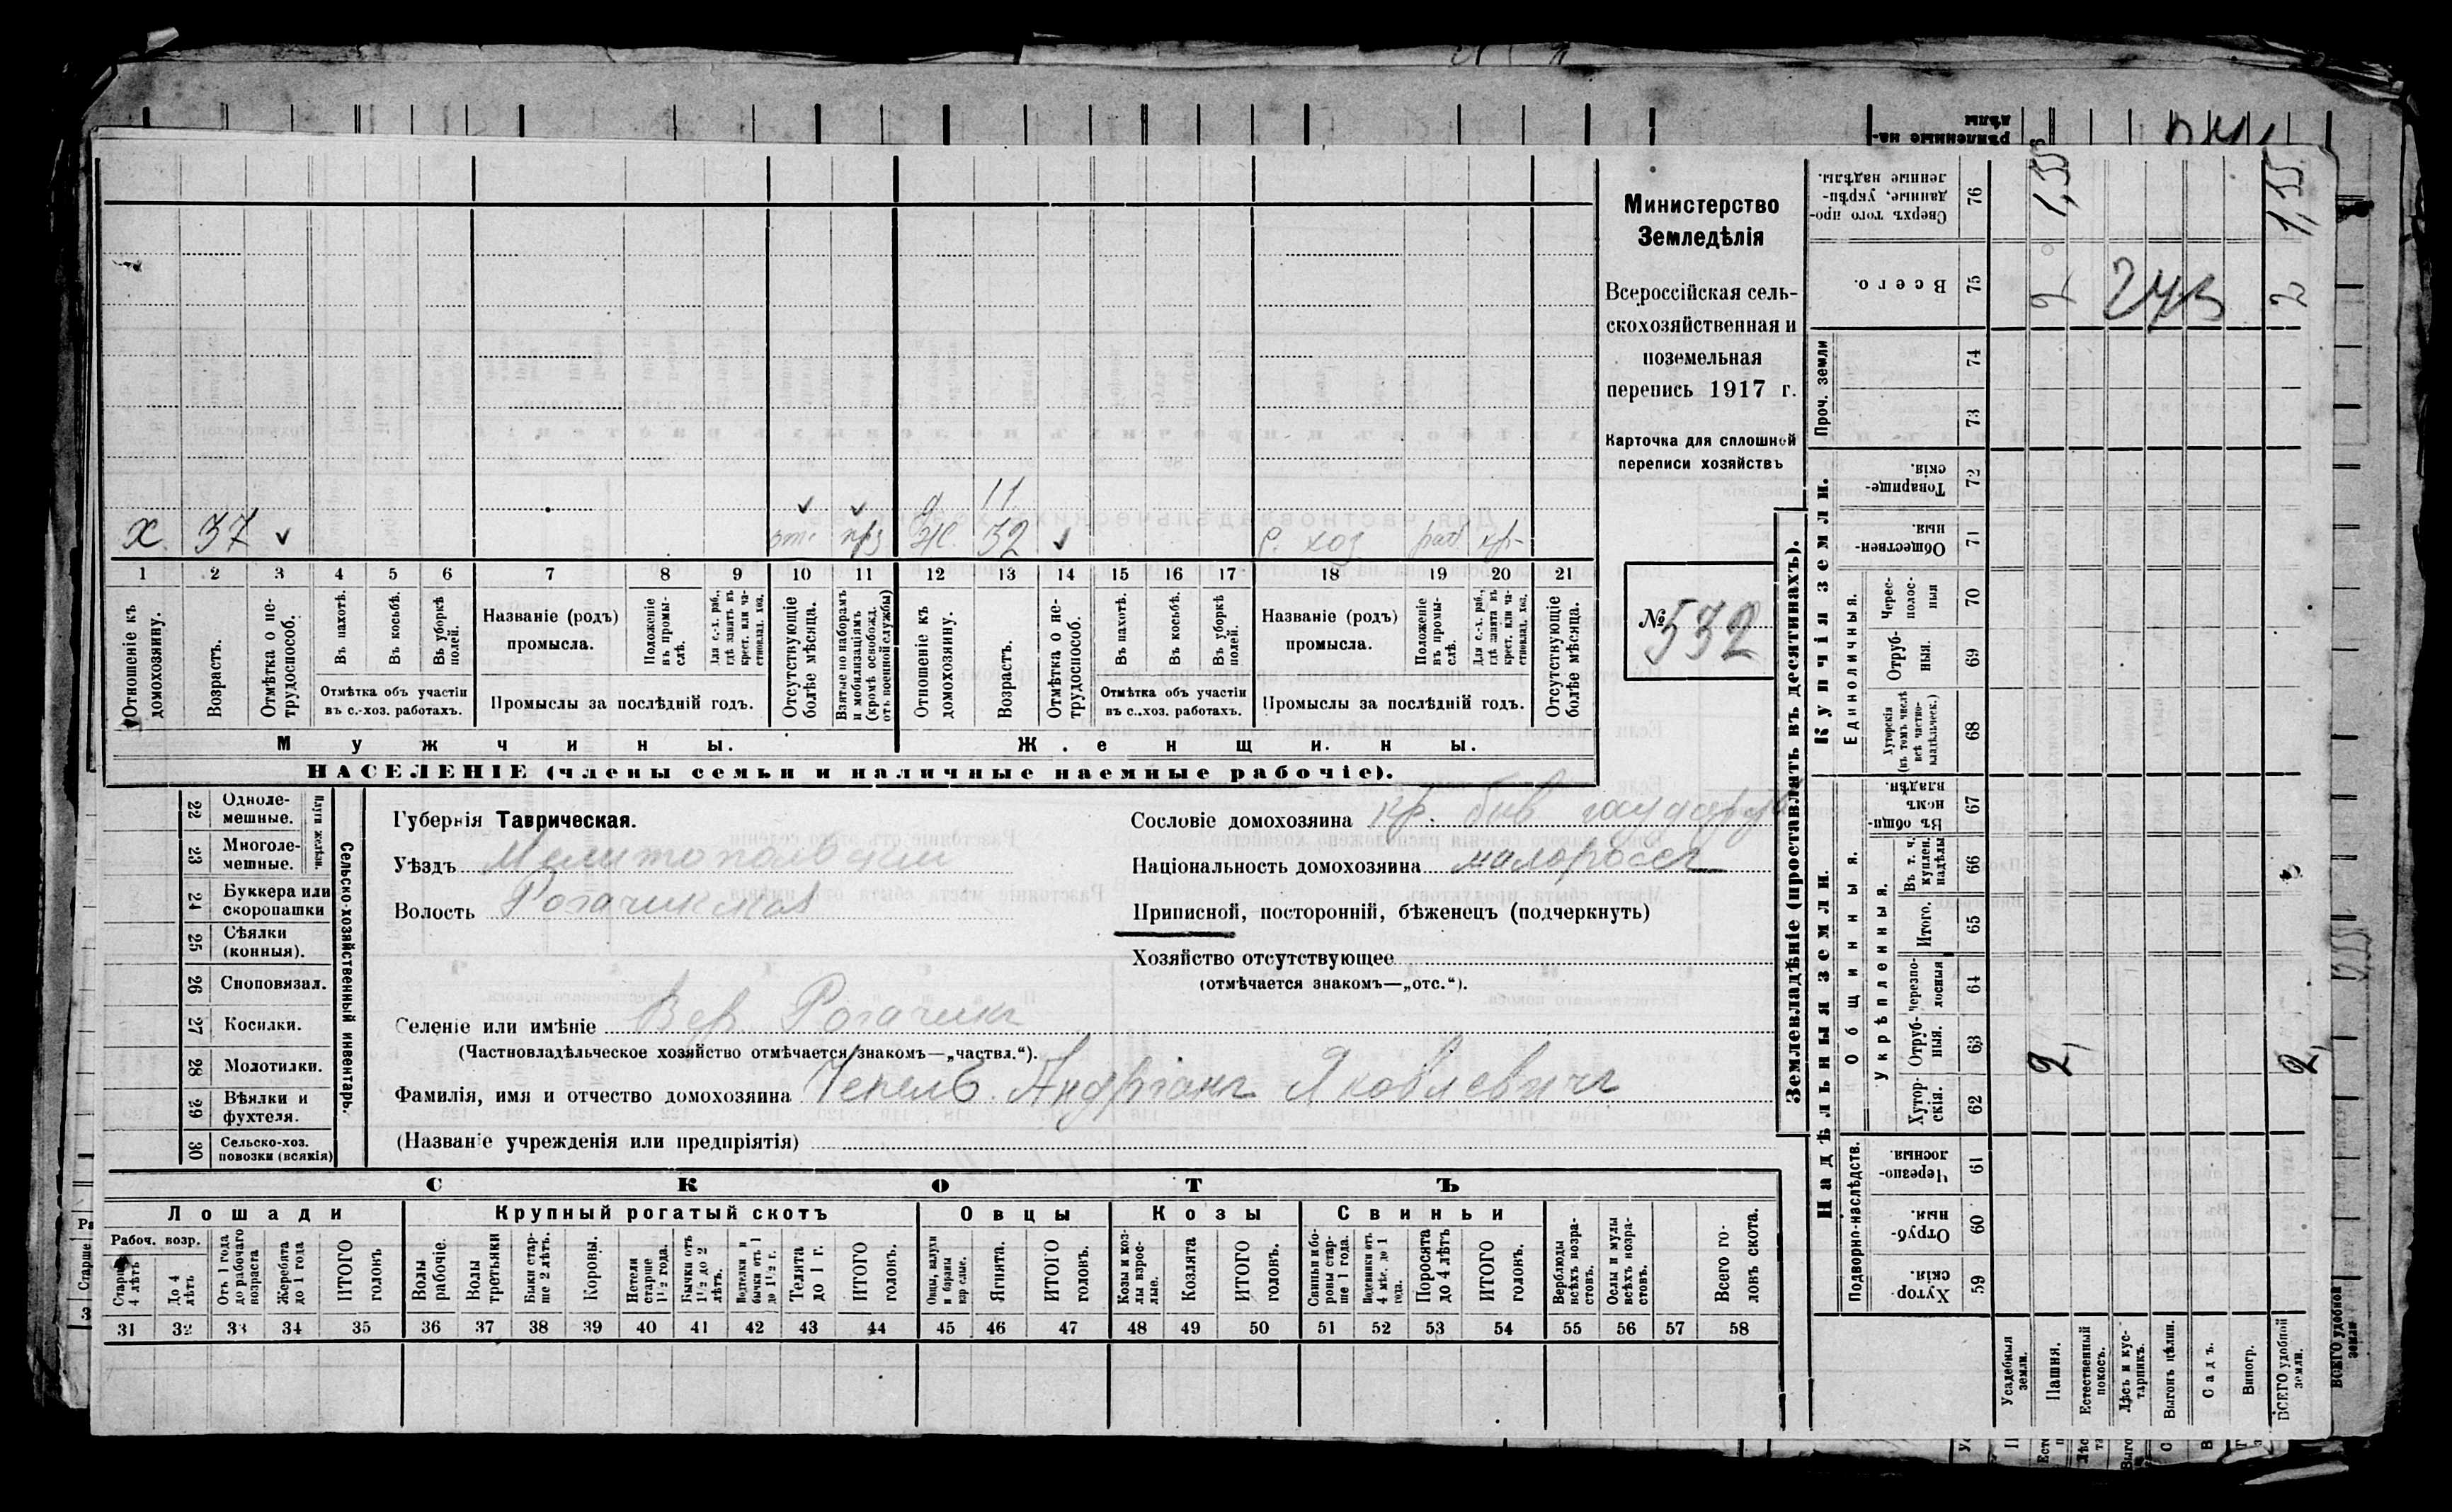 Министерство
Земледѣлія
Всероссійская сель-
скохозяйственная и
поземельная
перепись 1917 г.
Карточка для сплошной
переписи хозяйствъ
№ 532
д 11
х 37 отс. прз Ж 32 р. хоз раб. кр.
1 2 3 4 5 6 7 8 9 10 11 12 13 14 15 16 17 18 19 20 21
Отношеніе къ домохозяину.
Возрастъ.
Отмѣтка о не-трудоспособ.
Въ пахотѣ.
Въ косьбѣ.
Въ уборкѣ полей.
Отмѣтка объ участіи
въ с.-хоз. работахъ.
Названіе (родъ)
промысла.
Положеніе въ промы-слѣ.
Для с.-х. раб., гдѣ занятъ въ крест. или ча-стновлад. хоз.
Промыслы за послѣдній годъ.
Отсутствующіе болѣе мѣсяца.
Взятые по наборамъ и мобилизаціямъ (кромѣ освобожд. отъ военной службы)
Отношеніе къ домохозяину.
Возрастъ.
Отмѣтка о не-трудоспособ.
Въ пахотѣ.
Въ косьбѣ.
Въ уборкѣ полей.
Отмѣтка объ участіи
въ с.-хоз. работахъ.
Названіе (родъ)
промысла.
Положеніе въ промы-слѣ.
Для с.-х. раб., гдѣ занята въ крест. или ча-стновлад. хоз.
Промыслы за послѣдній годъ.
Отсутствующіе болѣе мѣсяца.
Мужчины. Женщины.
НАСЕЛЕНІЕ (члены семьи и наличные наемные рабочіе).
Сельско-хозяйственный инвентарь.
Плуги желѣзн.
22 Одноле-мешные.
23 Многоле-мешные.
24 Буккера или скоропашки
25 Сѣялки (конныя).
26 Сноповязал.
27 Косилки.
28 Молотилки.
29 Вѣялки и фухтеля.
30 Сельско-хоз. повозки (всякія)
Губернія Таврическая.
Уѣздъ Мелитопольский
Волость Рогачикская
Сословіе домохозяина кр. быв государ
Національность домохозяина малоросс
Приписной, посторонній, бѣженецъ (подчеркнуть)
Хозяйство отсутствующее
(отмѣчается знакомъ—„отс.“).
Селеніе или имѣніе Вер. Рогачик
(Частновладѣльческое хозяйство отмѣчается знакомъ—„частвл.“).
Фамилія, имя и отчество домохозяина Чепель Андріанъ Яковлевичъ
(Названіе учрежденія или предпріятія)
СКОТЪ
Лошади Крупный рогатый скотъ Овцы Козы Свиньи
Рабоч. возр.
Старше 4 лѣтъ
До 4 лѣтъ
Отъ 1 года до рабочаго возраста
Жеребята до 1 года
ИТОГО головъ
Волы рабочіе.
Волы третьяки
Быки стар-ше 2 лѣтъ.
Коровы.
Нетели старше 1½ года.
Бычки отъ 1½ до 2 лѣтъ.
Подтелки и бычки отъ 1 до 1½ г.
Телята до 1 г.
ИТОГО головъ.
Овцы, валухи и бараны взрослые.
Ягнята.
ИТОГО головъ.
Козы и коз-лы взрос-лые.
Козлята
ИТОГО головъ.
Свиньи и бо-ровы стар-ше 1 года.
Подсвинки отъ 4 мѣс. до 1 года.
Поросята до 4 лѣтъ
ИТОГО головъ.
Верблюды всѣхъ возра-стовъ.
Ослы и мулы всѣхъ возра-стовъ.
Всего го-ловъ скота.
31 32 33 34 35 36 37 38 39 40 41 42 43 44 45 46 47 48 49 50 51 52 53 54 55 56 57 58
Землевладѣніе (проставлять въ десятинахъ).
Надѣльныя земли.
Подворно-наслѣдств.
Хутор-скія. 59
Отруб-ныя. 60
Черезпо-лосныя. 61
Общинныя.
Укрѣпленныя.
Хутор-скія. 62
Отруб-ныя. 63
Черезпо-лосныя 64
Итого. 65
Въ т. ч. куплен. надѣлы 66
Въ общин-номъ владѣн. 67
Купчія земли.
Единоличныя.
Хуторскія (въ томъ числѣ всѣ частно-владѣльческ.) 68
Отруб-ныя. 69
Черес-полос-ныя 70
Обществен-ныя. 71
Товарище-скія. 72
Проч. земли
73 74
Всего. 75
Сверхъ того про-данные, укрѣп-ленные надѣлы. 76
Усадебныя земли.
Пашня. 2, 2 1,35
Естественный покосъ.
Лѣсъ и кус-тарникъ.
Выгонъ цѣлин.
Садъ.
Виногр.
ВСЕГО удобной земли. 2, 2 1,35
243
ВСЕГО удобной земли